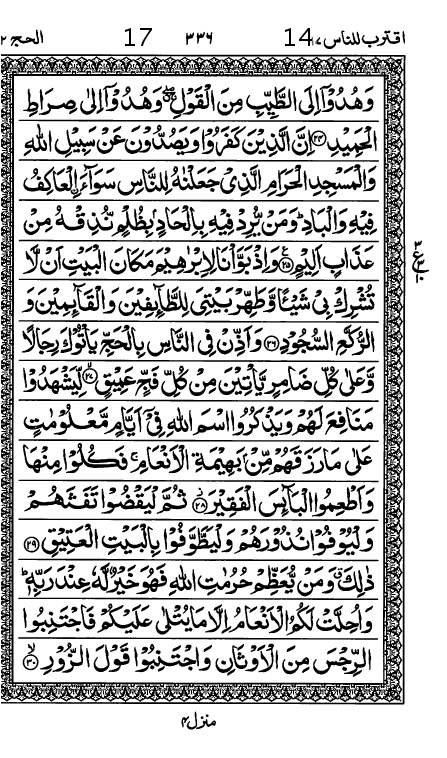 اقترب للناس ۱۷ 14 ۳۳۶ 17 الحج ۲
وَهُدُوۡۤا اِلَى الطَّيِّبِ مِنَ الۡقَوۡلِ ۖۚ وَهُدُوۡۤا اِلٰى صِرَاطِ
الۡحَمِيۡدِ ﴿۲۴﴾ اِنَّ الَّذِيۡنَ كَفَرُوۡا وَيَصُدُّوۡنَ عَنۡ سَبِيۡلِ اللّٰهِ
وَالۡمَسۡجِدِ الۡحَرَامِ الَّذِىۡ جَعَلۡنٰهُ لِلنَّاسِ سَوَآءَ اۨلۡعَاكِفُ
فِيۡهِ وَالۡبَادِ ؕ وَمَنۡ يُّرِدۡ فِيۡهِ بِاِلۡحَادٍۢ بِظُلۡمٍ نُّذِقۡهُ مِنۡ
عَذَابٍ اَلِيۡمٍ ﴿۲۵﴾ وَاِذۡ بَوَّاۡنَا لِاِبۡرٰهِيۡمَ مَكَانَ الۡبَيۡتِ اَنۡ لَّا
تُشۡرِكۡ بِىۡ شَيۡـًٔـا وَّطَهِّرۡ بَيۡتِىَ لِلطَّآٮِٕفِيۡنَ وَالۡقَآٮِٕمِيۡنَ وَ
الرُّكَّعِ السُّجُوۡدِ ﴿۲۶﴾ وَاَذِّنۡ فِى النَّاسِ بِالۡحَجِّ يَاۡتُوۡكَ رِجَالًا
وَّعَلٰى كُلِّ ضَامِرٍ يَّاۡتِيۡنَ مِنۡ كُلِّ فَجٍّ عَمِيۡقٍ ﴿۲۷﴾ لِّيَشۡهَدُوۡا
مَنَافِعَ لَهُمۡ وَيَذۡكُرُوا اسۡمَ اللّٰهِ فِىۡۤ اَيَّامٍ مَّعۡلُوۡمٰتٍ
عَلٰى مَا رَزَقَهُمۡ مِّنۡۢ بَهِيۡمَةِ الۡاَنۡعَامِ ۚ فَكُلُوۡا مِنۡهَا
وَاَطۡعِمُوا الۡبَآٮِٕسَ الۡفَقِيۡرَ ﴿۲۸﴾ ثُمَّ لۡيَقۡضُوۡا تَفَثَهُمۡ
وَلۡيُوۡفُوۡا نُذُوۡرَهُمۡ وَلۡيَطَّوَّفُوۡا بِالۡبَيۡتِ الۡعَتِيۡقِ ﴿۲۹﴾
ذٰلِكَ ۚ وَمَنۡ يُّعَظِّمۡ حُرُمٰتِ اللّٰهِ فَهُوَ خَيۡرٌ لَّهٗ عِنۡدَ رَبِّهٖ ؕ
وَاُحِلَّتۡ لَكُمُ الۡاَنۡعَامُ اِلَّا مَا يُتۡلٰى عَلَيۡكُمۡ فَاجۡتَنِبُوا
الرِّجۡسَ مِنَ الۡاَوۡثَانِ وَاجۡتَنِبُوۡا قَوۡلَ الزُّوۡرِ ۙ ﴿۳۰﴾
منزل ۴